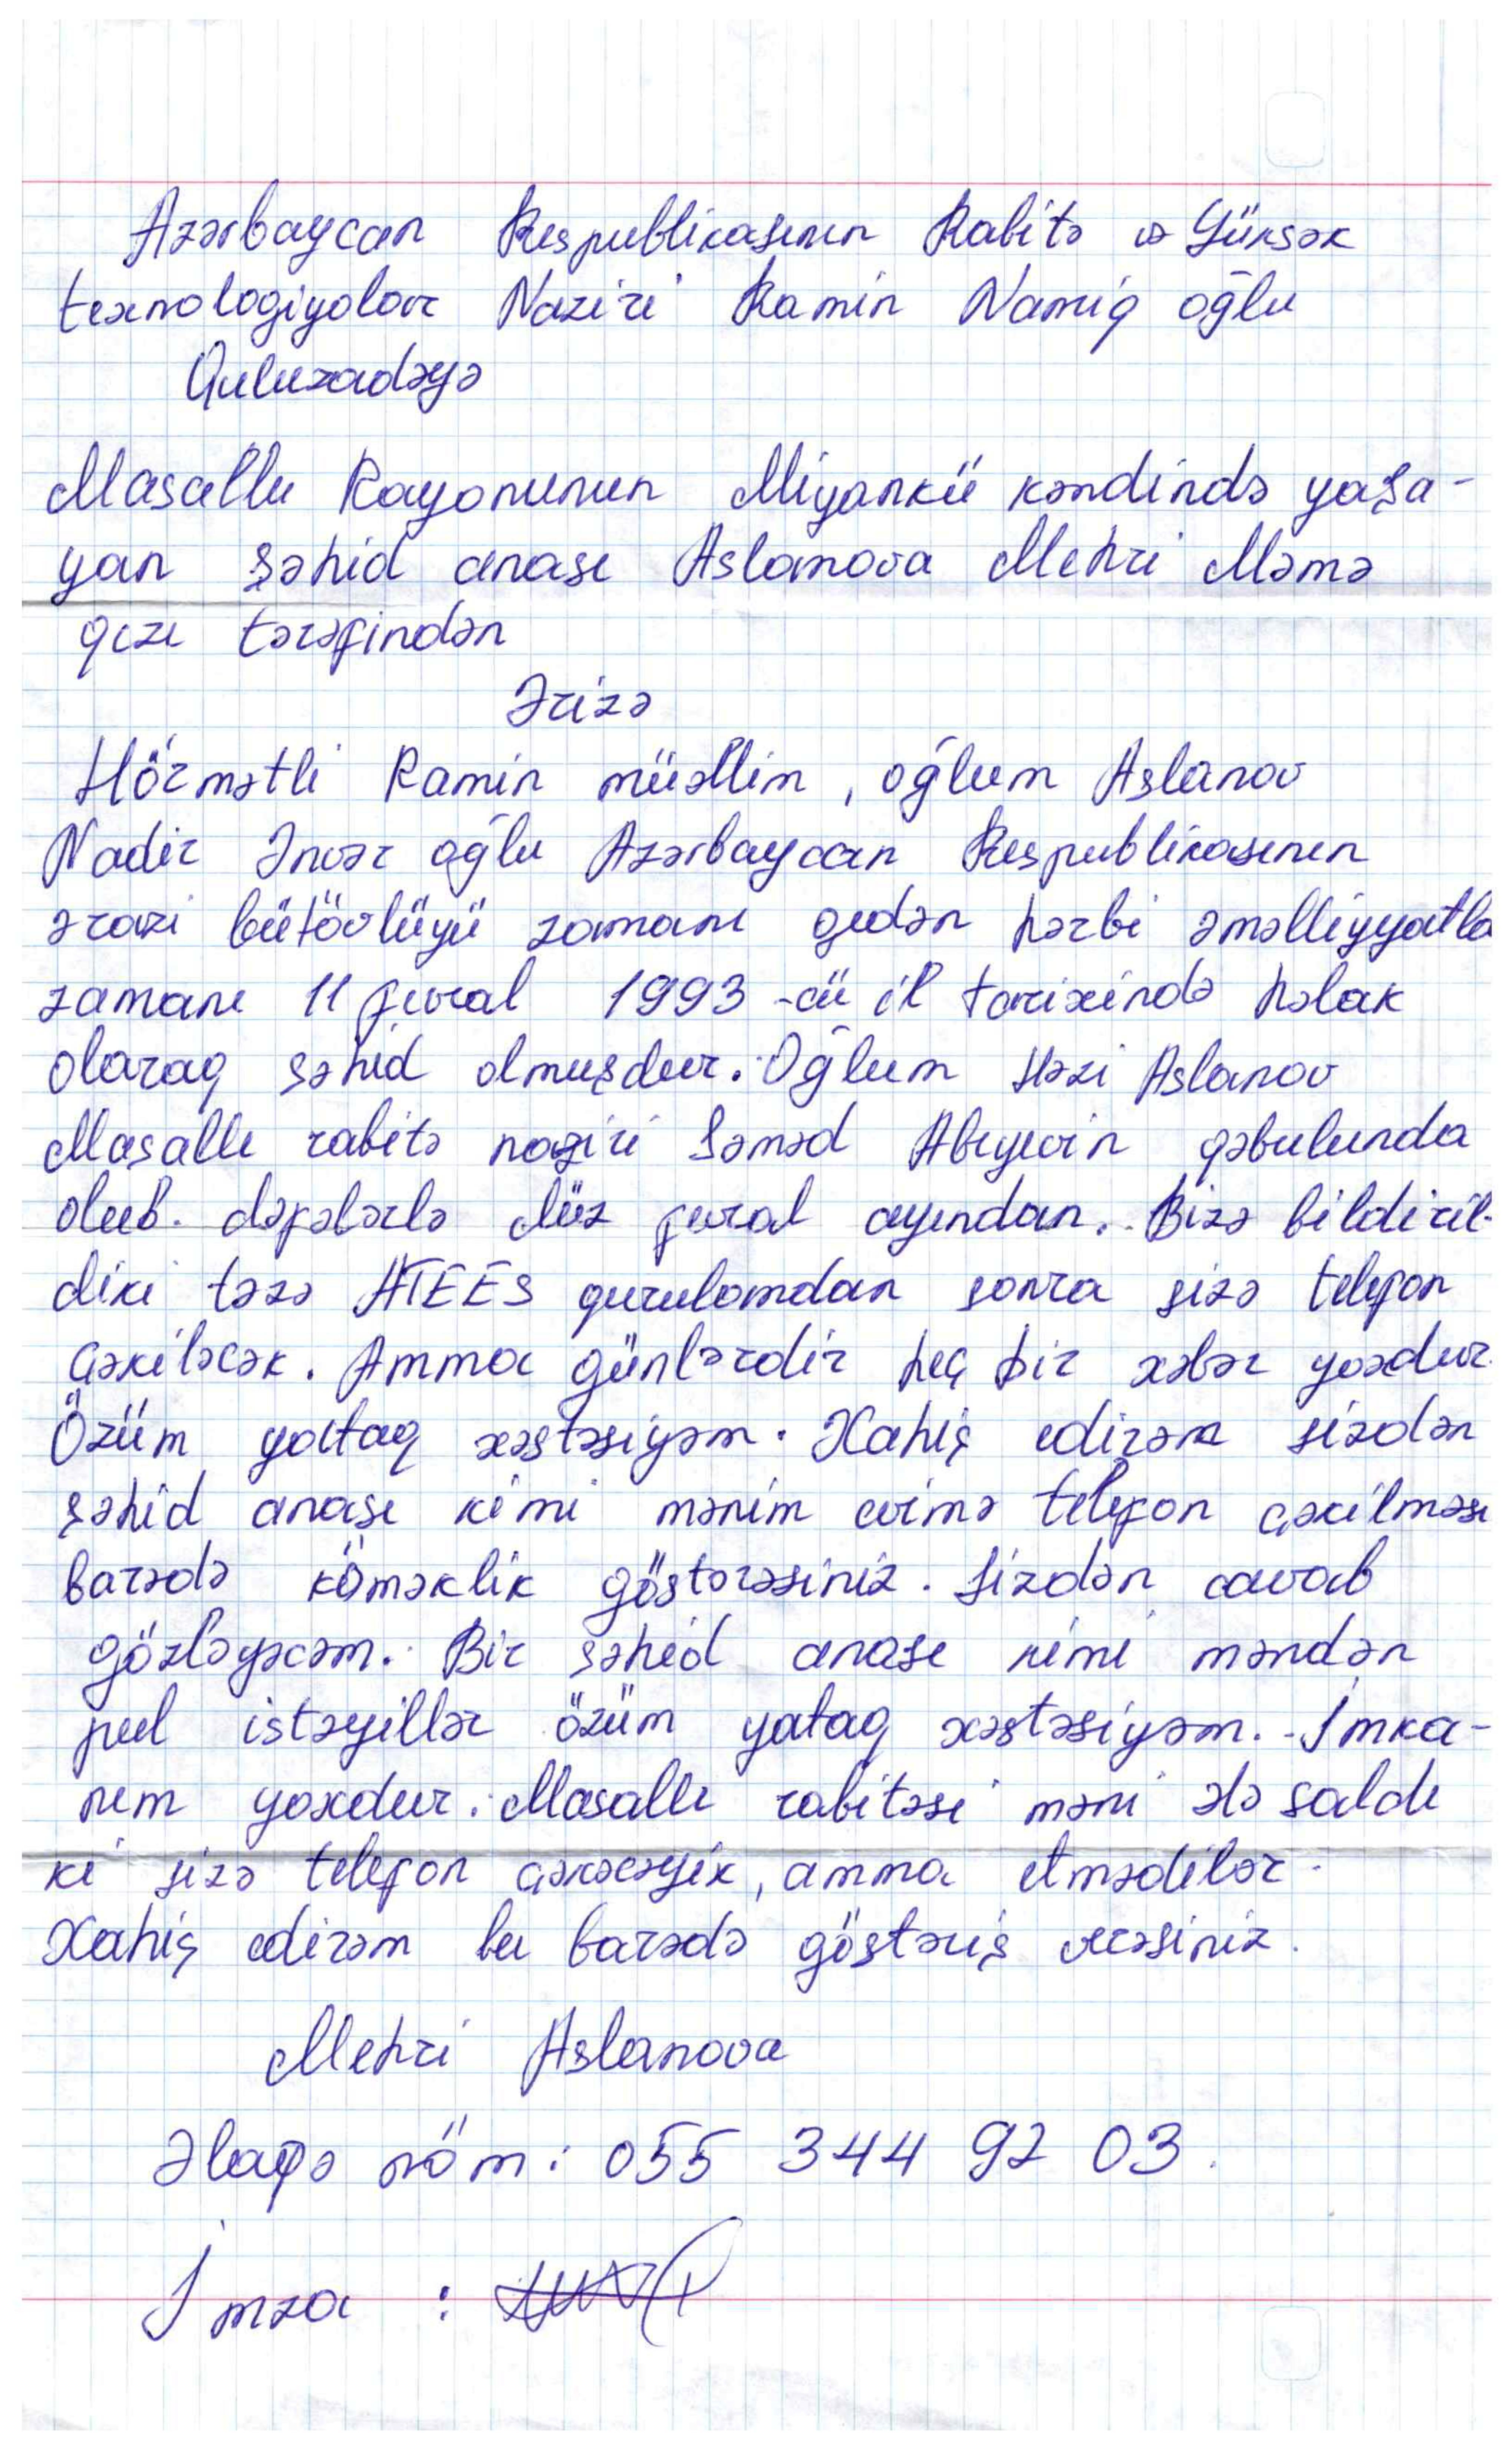 Azərbaycan Respublikasının Rabitə və Yüksək
texnologiyalar Naziri Ramin Namiq oğlu
Quluzadəyə
Masallı Rayonunun Miyankü kəndində yaşa-
yan şəhid anası Aslanova Mehri Məmə
qızı tərəfindən
Ərizə
Hörmətli Ramin müəllim, oğlum Aslanov
Nadir Ənvər oğlu Azərbaycan Respublikasının
ərazi bütövlüyü zamanı gedən hərbi əməlliyyatla
zamanı 11 fevral 1993-cü il tarixində həlak
olaraq şəhid olmuşdur. Oğlum Həzi Aslanov
Masallı rabitə naziri Səməd Abıyevin qəbulunda
olub. dəfələrlə düz fevral ayından. Bizə bildiril-
diki təzə ATEES qurulandan sonra sizə telefon
çəkiləcək. Amma günlərdir heç bir xəbər yoxdur.
Özüm yataq xəstəsiyəm. Xahiş edirəm sizdən
şəhid anası kimi mənim evimə telefon çəkilməsi
barədə köməklik göstərəsiniz. Sizdən cavab
gözləyəcəm. Bir şəhid anası kimi məndən
pul istəyillər özüm yataq xəstəsiyəm. İmka-
nım yoxdur. Masallı rabitəsi məni ələ saldı
ki sizə telefon çəkəcəyik, amma etmədilər.
Xahiş edirəm bu barədə göstəriş verəsiniz.
Mehri Aslanova
Əlaqə nöm: 055 344 92 03.
İmza :